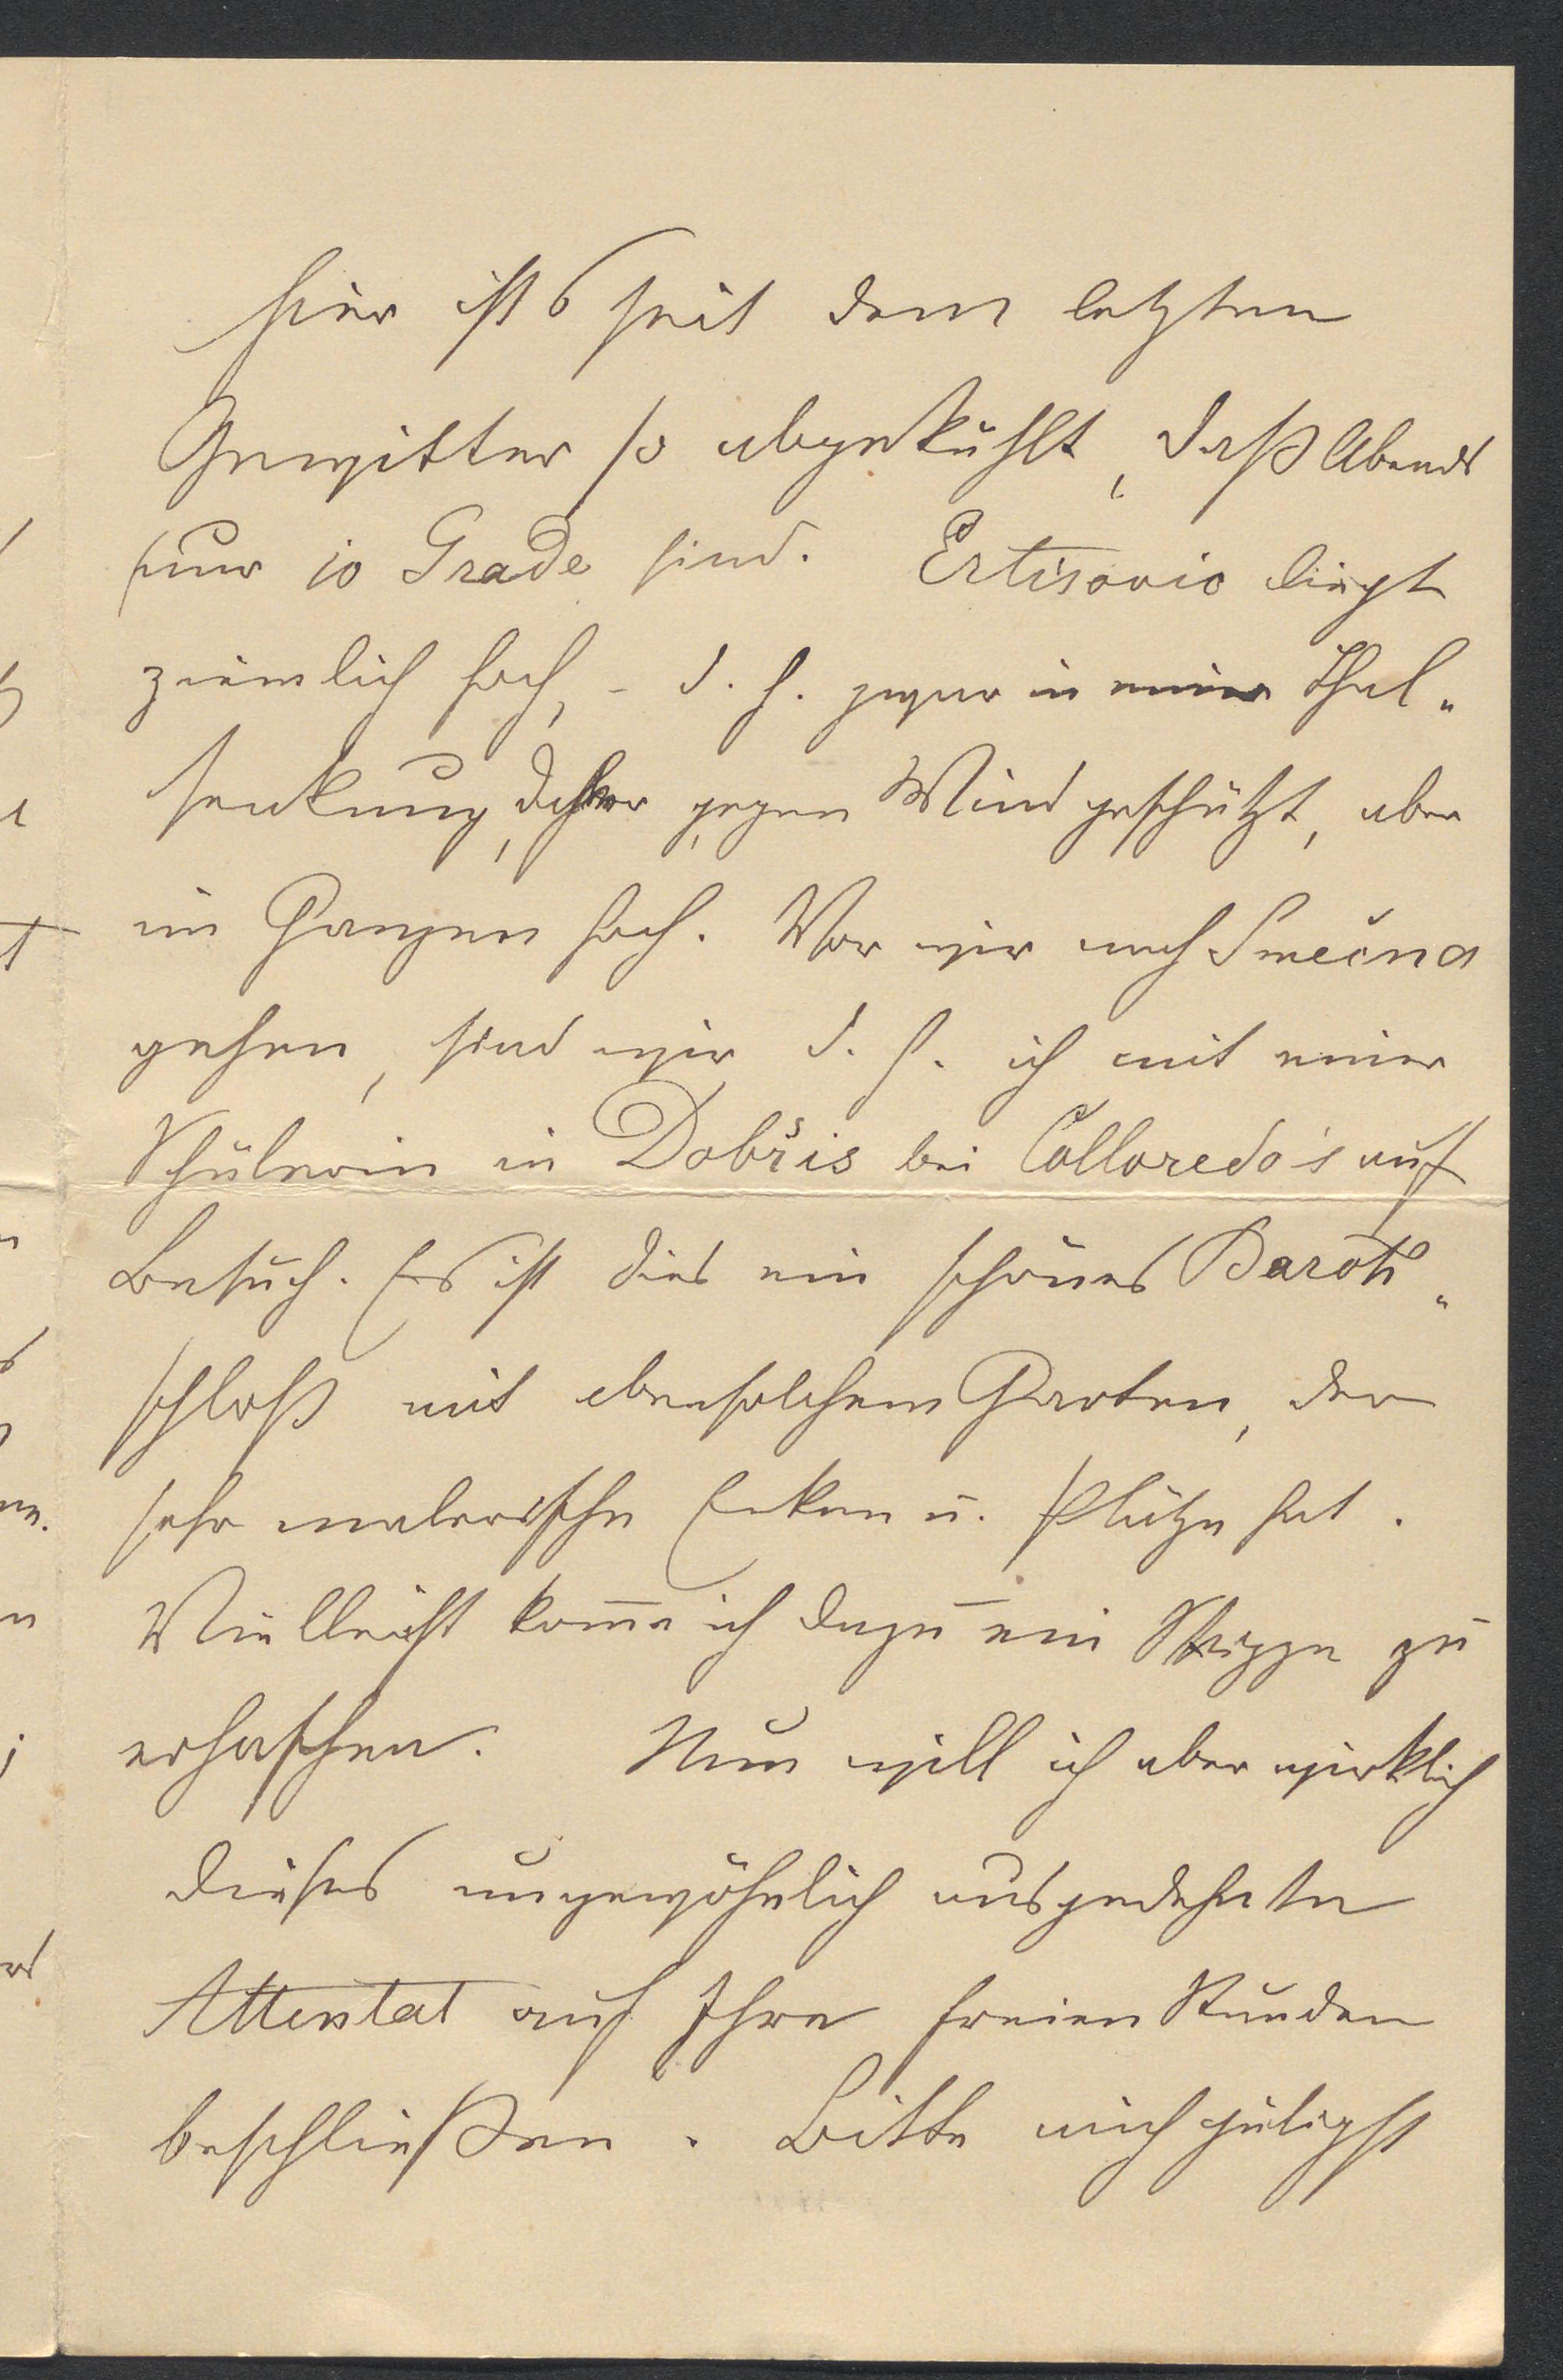 hier ists seit dem letzten
Gewitter so abgekühlt, daß Abends
nur 10 Grade sind. Ertisovic liegt
ziemlich hoch, - d. h. zwar in einer Thal„
senkung, daher gegen Wind geschützt, aber
im Ganzen hoch. Vor wir nach Smečna
gehen, sind wir d. h. ich mit einer
Schülerin in Dobřis bei Colloredo's auf
Besuch. Es ist dies ein schönes Barok„
schloß mit ebensolchem Garten, der
sehr malerische Ecken u. Plätze hat.
Vielleicht kom̅e ich dazu ein Skizze zu
erhaschen. Nun will ich aber wirklich
dieses ungewöhnlich ausgedehnte
Attentat auf Ihre freien Stunden
beschließen. Bitte mich gütigst